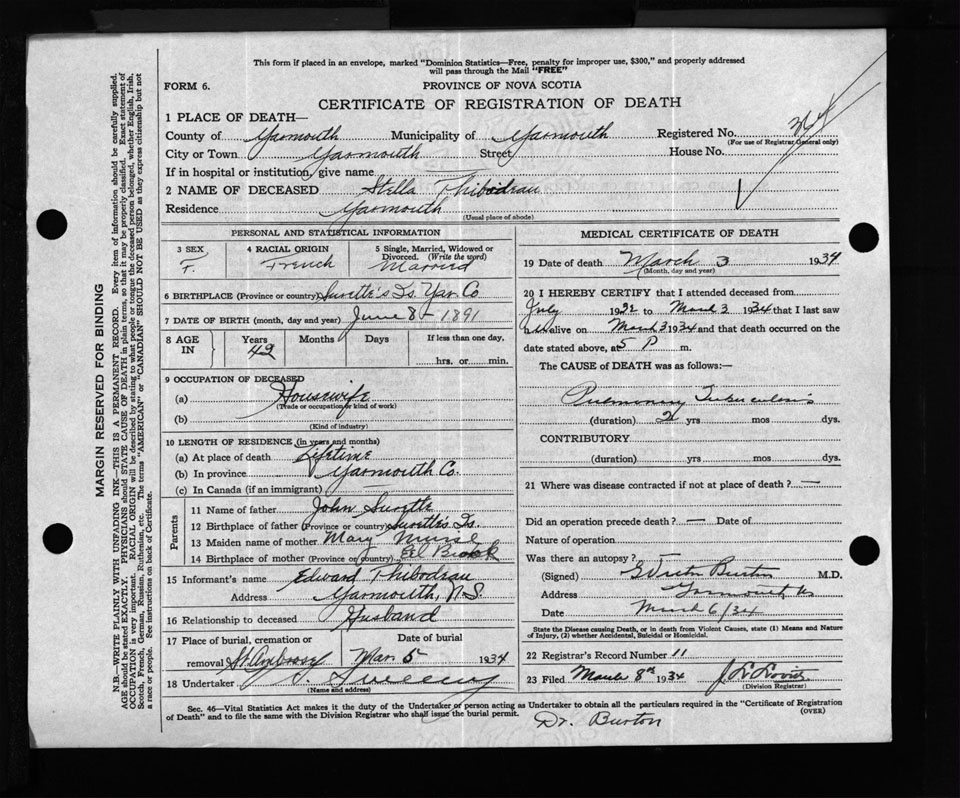 This form if placed in an envelope, marked "Dominion Statistics—Free, penalty for improper use, $300," and properly addressed
will pass through the Mail "FREE"
FORM 6.
PROVINCE OF NOVA SCOTIA
CERTIFICATE OF REGISTRATION OF DEATH
1 PLACE OF DEATH—
County of Yarmouth Municipality of Yarmouth Registered No.
(For use of Registrar General only)
City or Town Yarmouth Street House No.
If in hospital or institution, give name —
2 NAME OF DECEASED Stella Thibodeau
Residence Yarmouth
(Usual place of abode)
PERSONAL AND STATISTICAL INFORMATION
3 SEX 4 RACIAL ORIGIN 5 Single, Married, Widowed or
Divorced. (Write the word)
F. French Married
6 BIRTHPLACE (Province or country) Surette's Is. Yar. Co
7 DATE OF BIRTH (month, day and year) June 8 - 1891
8 AGE IN Years Months Days If less than one day,
42
hrs. or min.
9 OCCUPATION OF DECEASED
(a) Housewife
(Trade or occupation or kind of work)
(b)
(Kind of industry)
10 LENGTH OF RESIDENCE (in years and months)
(a) At place of death Lifetime
(b) In province Yarmouth Co.
(c) In Canada (if an immigrant) —
Parents
11 Name of father John Surette
12 Birthplace of father (Province or country) Surette's Is.
13 Maiden name of mother Mary Murse
14 Birthplace of mother (Province or country) Eel Brook
15 Informant's name Edward Thibodeau
Address Yarmouth, N.S.
16 Relationship to deceased Husband
17 Place of burial, cremation or Date of burial
removal St. Ambrose Mar. 5 1934
18 Undertaker Sweeny
(Name and address)
MEDICAL CERTIFICATE OF DEATH
19 Date of death March 3 1934
(Month, day and year)
20 I HEREBY CERTIFY that I attended deceased from
July 1932 to March 3 1934 that I last saw
her alive on March 3 1934 and that death occurred on the
date stated above, at 5 P m.
The CAUSE of DEATH was as follows:—
Pulmonary Tuberculosis
(duration) 2 yrs mos. dys.
CONTRIBUTORY
(duration) yrs mos. dys.
21 Where was disease contracted if not at place of death? —
Did an operation precede death? — Date of
Nature of operation
Was there an autopsy? —
(Signed) Burton M.D.
Address Yarmouth
Date March 6/34
State the Disease causing Death, or in death from Violent Causes, state (1) Means and Nature
of Injury, (2) whether Accidental, Suicidal or Homicidal.
22 Registrar's Record Number 11
23 Filed March 8th 1934
(Division Registrar)
Sec. 46—Vital Statistics Act makes it the duty of the Undertaker or person acting as Undertaker to obtain all the particulars required in the "Certificate of Registration
of Death" and to file the same with the Division Registrar who shall issue the burial permit.
(OVER)
Dr. Burton
MARGIN RESERVED FOR BINDING
N.B.—WRITE PLAINLY WITH UNFADING INK—THIS IS A PERMANENT RECORD. Every item of information should be carefully supplied.
AGE should be stated EXACTLY. PHYSICIANS should STATE CAUSE OF DEATH in plain terms, so that it may be properly classified. Exact statement of
OCCUPATION is very important. RACIAL ORIGIN will be described by stating to what people or tongue the deceased person belonged, whether English, Irish,
Scotch, French, German, Russian, Ruthenian, etc. The terms "AMERICAN" or "CANADIAN" SHOULD NOT BE USED as they express citizenship but not
a race or people. See instructions on back of Certificate.